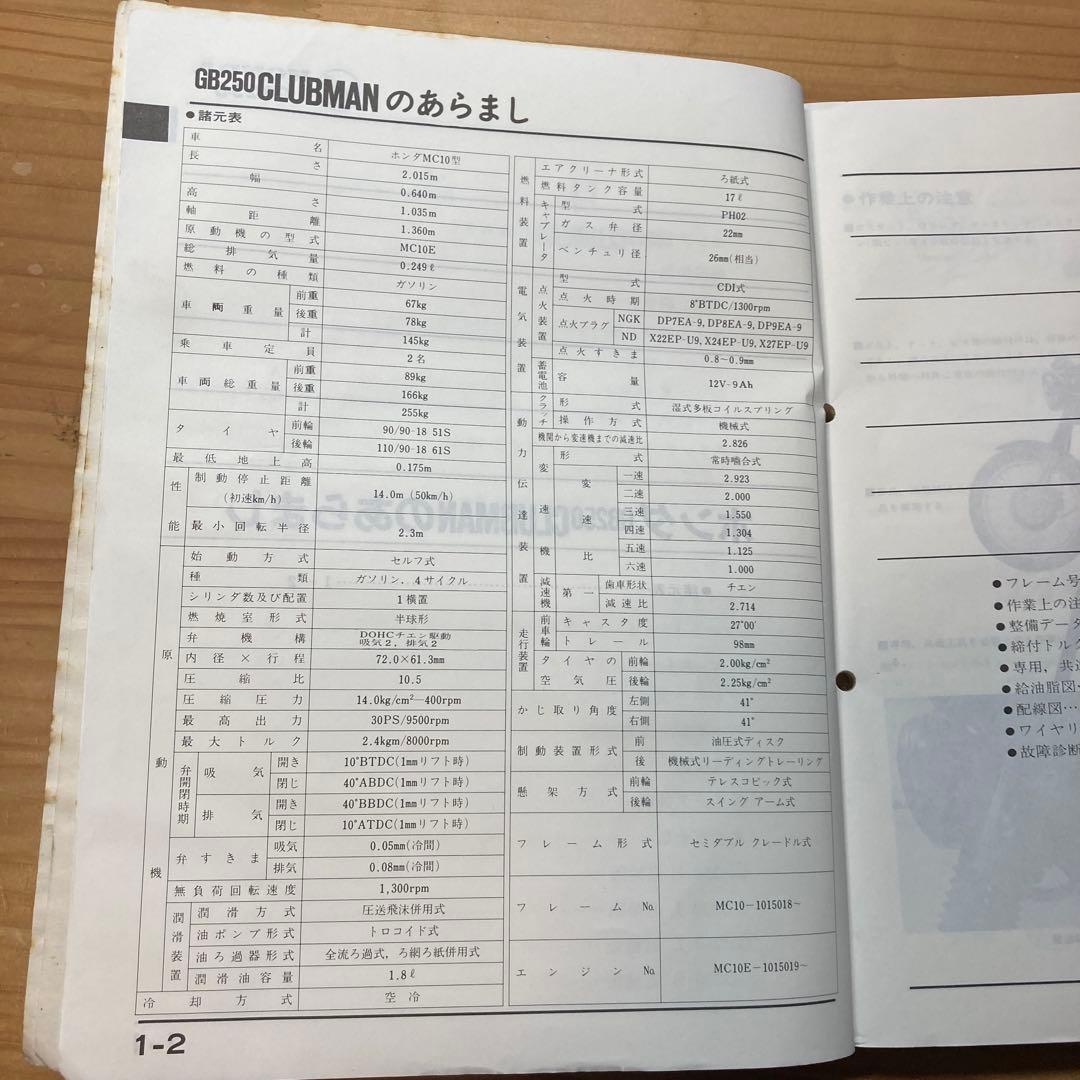 GB250 CLUBMAN のあらまし
●諸元表
車名 ホンダMC10型
長さ 2.015m
幅 0.640m
高さ 1.035m
軸距離 1.360m
原動機の型式 MC10E
総排気量 0.249ℓ
燃料の種類 ガソリン
車両重量 前重 67kg
後重 78kg
計 145kg
乗車定員 2名
車両総重量 前重 89kg
後重 166kg
計 255kg
タイヤ 前輪 90/90-18 51S
後輪 110/90-18 61S
最低地上高 0.175m
性能 制動停止距離 (初速km/h) 14.0m (50km/h)
最小回転半径 2.3m
原動機 始動方式 セルフ式
種類 ガソリン, 4サイクル
シリンダ数及び配置 1横置
燃焼室形式 半球形
弁機構 DOHCチエン駆動 吸気2, 排気2
内径×行程 72.0×61.3mm
圧縮比 10.5
圧縮圧力 14.0kg/cm²−400rpm
最高出力 30PS/9500rpm
最大トルク 2.4kgm/8000rpm
弁開閉時期 吸気 開き 10°BTDC(1mmリフト時)
閉じ 40°ABDC(1mmリフト時)
排気 開き 40°BBDC(1mmリフト時)
閉じ 10°ATDC(1mmリフト時)
弁すきま 吸気 0.05mm(冷間)
排気 0.08mm(冷間)
無負荷回転速度 1,300rpm
潤滑装置 潤滑方式 圧送飛沫併用式
油ポンプ形式 トロコイド式
油ろ過器形式 全流ろ過式, ろ網ろ紙併用式
潤滑油容量 1.8ℓ
冷却方式 空冷
燃料装置 エアクリーナ形式 ろ紙式
燃料タンク容量 17ℓ
キャブレータ 型式 PH02
ガス弁径 22mm
ベンチュリ径 26mm(相当)
電気装置 点火装置 型式 CDI式
点火時期 8°BTDC/1300rpm
点火プラグ NGK DP7EA-9, DP8EA-9, DP9EA-9
ND X22EP-U9, X24EP-U9, X27EP-U9
点火すきま 0.8~0.9mm
蓄電池 容量 12V-9Ah
動力伝達装置 クラッチ 形式 湿式多板コイルスプリング
操作方式 機械式
機関から変速機までの減速比 2.826
変速機 形式 常時噛合式
変速比 一速 2.923
二速 2.000
三速 1.550
四速 1.304
五速 1.125
六速 1.000
減速機 第一 歯車形状 チエン
減速比 2.714
走行装置 前車輪 キャスタ度 27°00′
トレール 98mm
タイヤの空気圧 前輪 2.00kg/cm²
後輪 2.25kg/cm²
かじ取り角度 左側 41°
右側 41°
制動装置形式 前 油圧式ディスク
後 機械式リーディングトレーリング
懸架方式 前輪 テレスコピック式
後輪 スイング アーム式
フレーム形式 セミダブル クレードル式
フレームNo. MC10-1015018~
エンジンNo. MC10E-1015019~
1-2
●作業上の注意
●フレーム号
●作業上の注
●整備データ
●締付トルク
●専用, 共通
●給油脂図…
●配線図…
●ワイヤリ
●故障診断